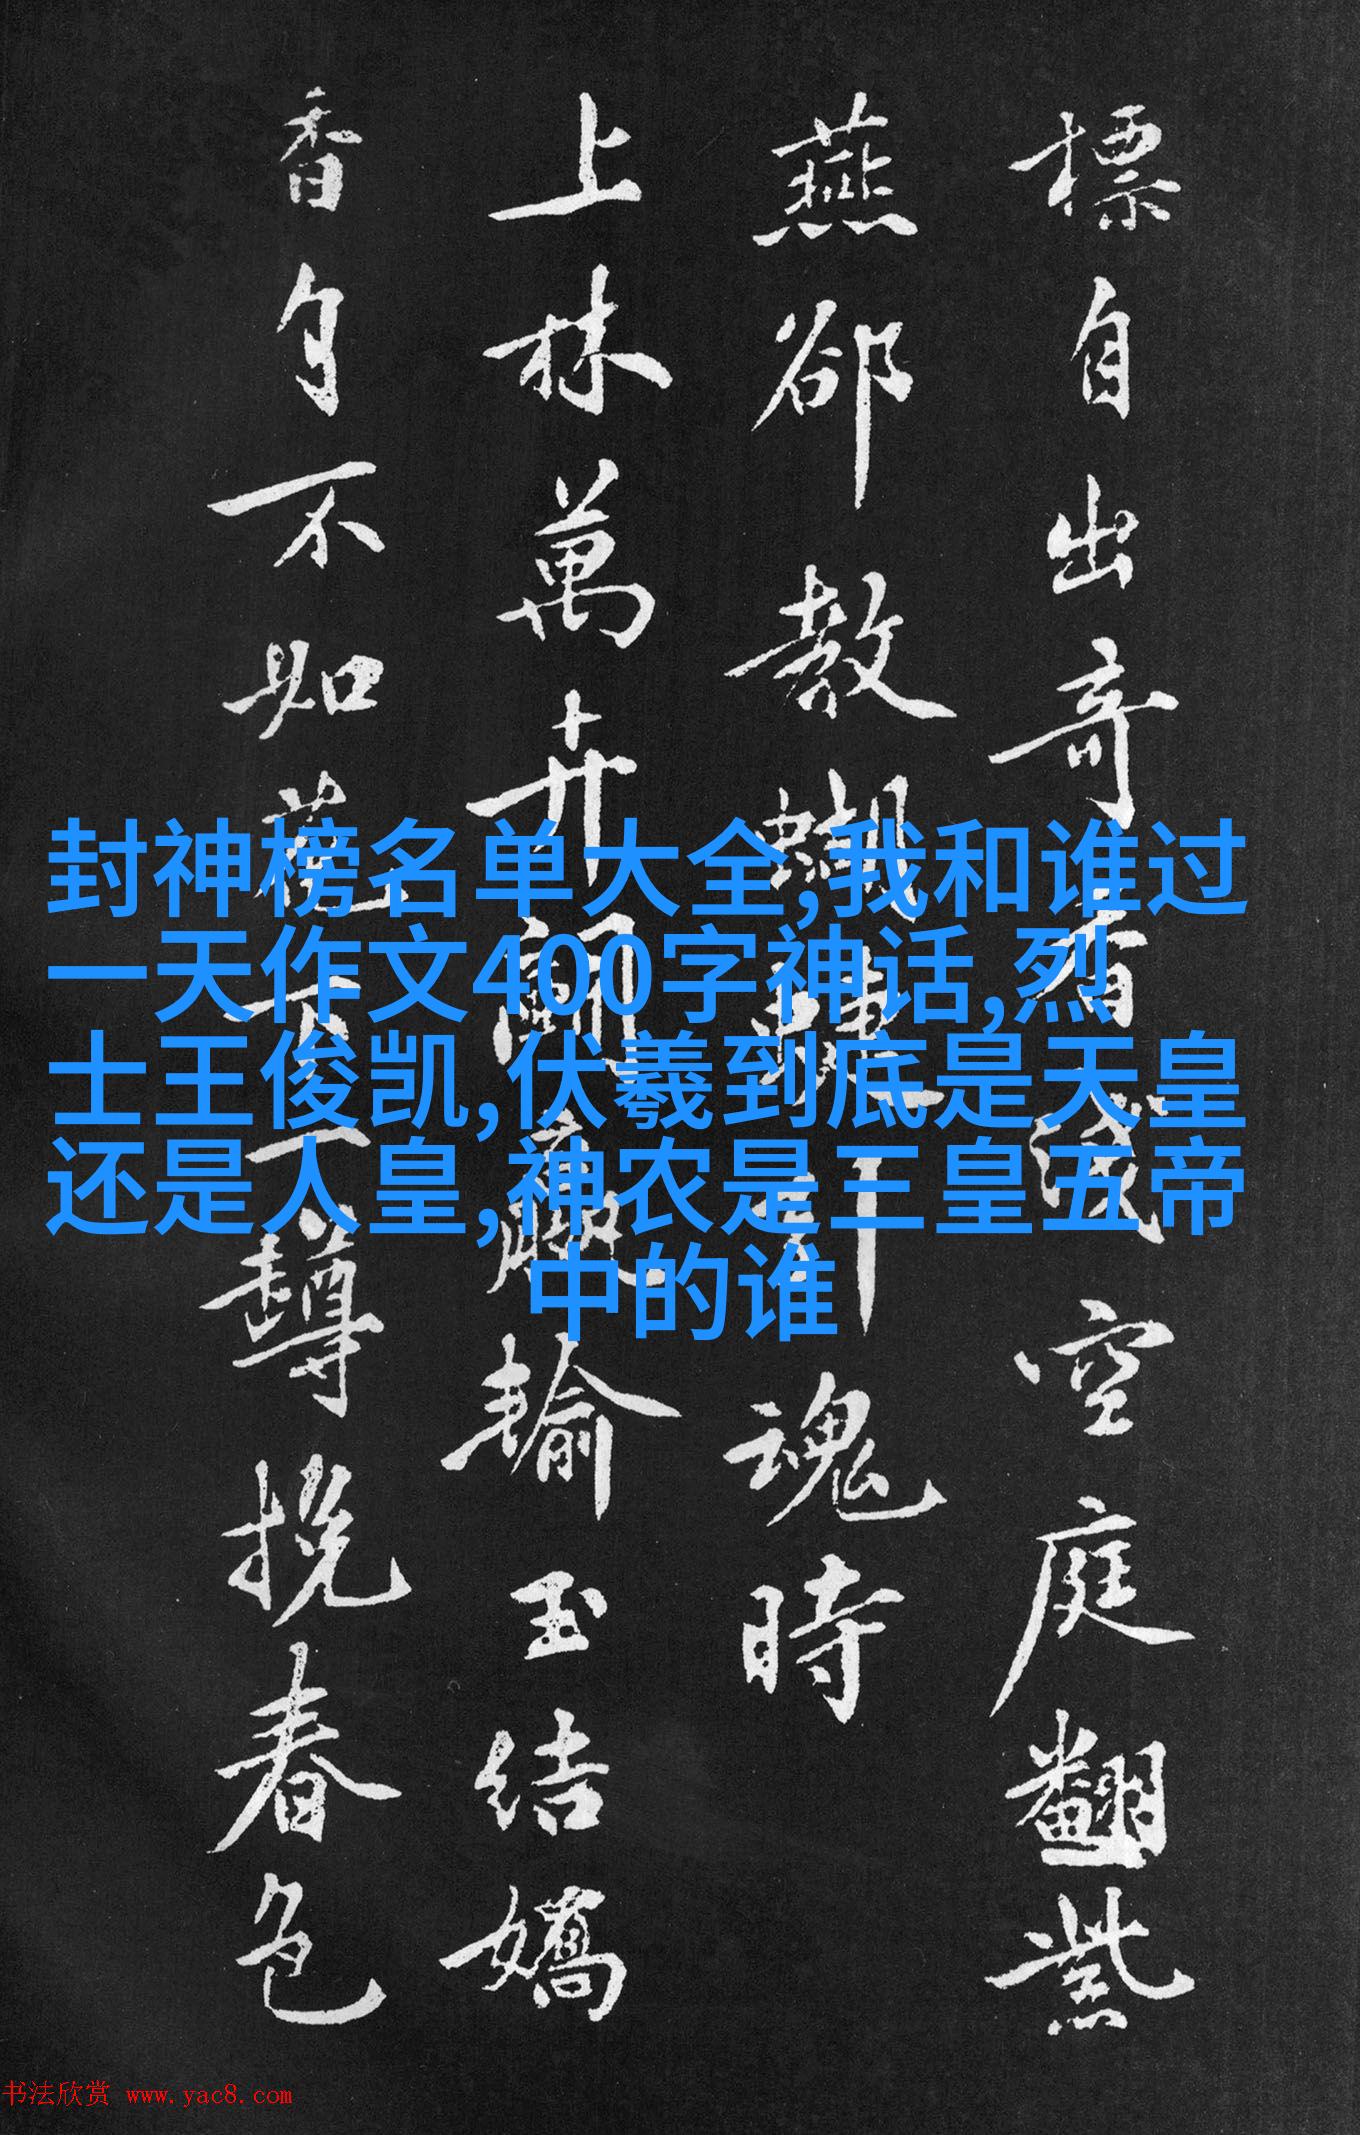 標自出奇看空庭翻紫
燕郤教蝴蝶引魂時
上林萬卉輸玉結嬌
香自不如一挽春色
封神榜名单大全,我和谁过
一天作文400字神话,烈
士王俊凯,伏羲到底是天皇
还是人皇,神农是三皇五帝
中的谁
书法欣赏 www.yac8.com